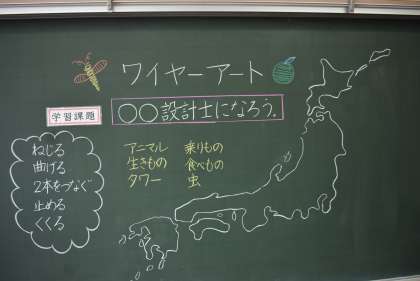 ワイヤーアート
学習課題
〇〇設計士になろう。
ねじる
曲げる
2本をつなぐ
止める
くくる
アニマル 乗りもの
生きもの 食べもの
タワー 虫